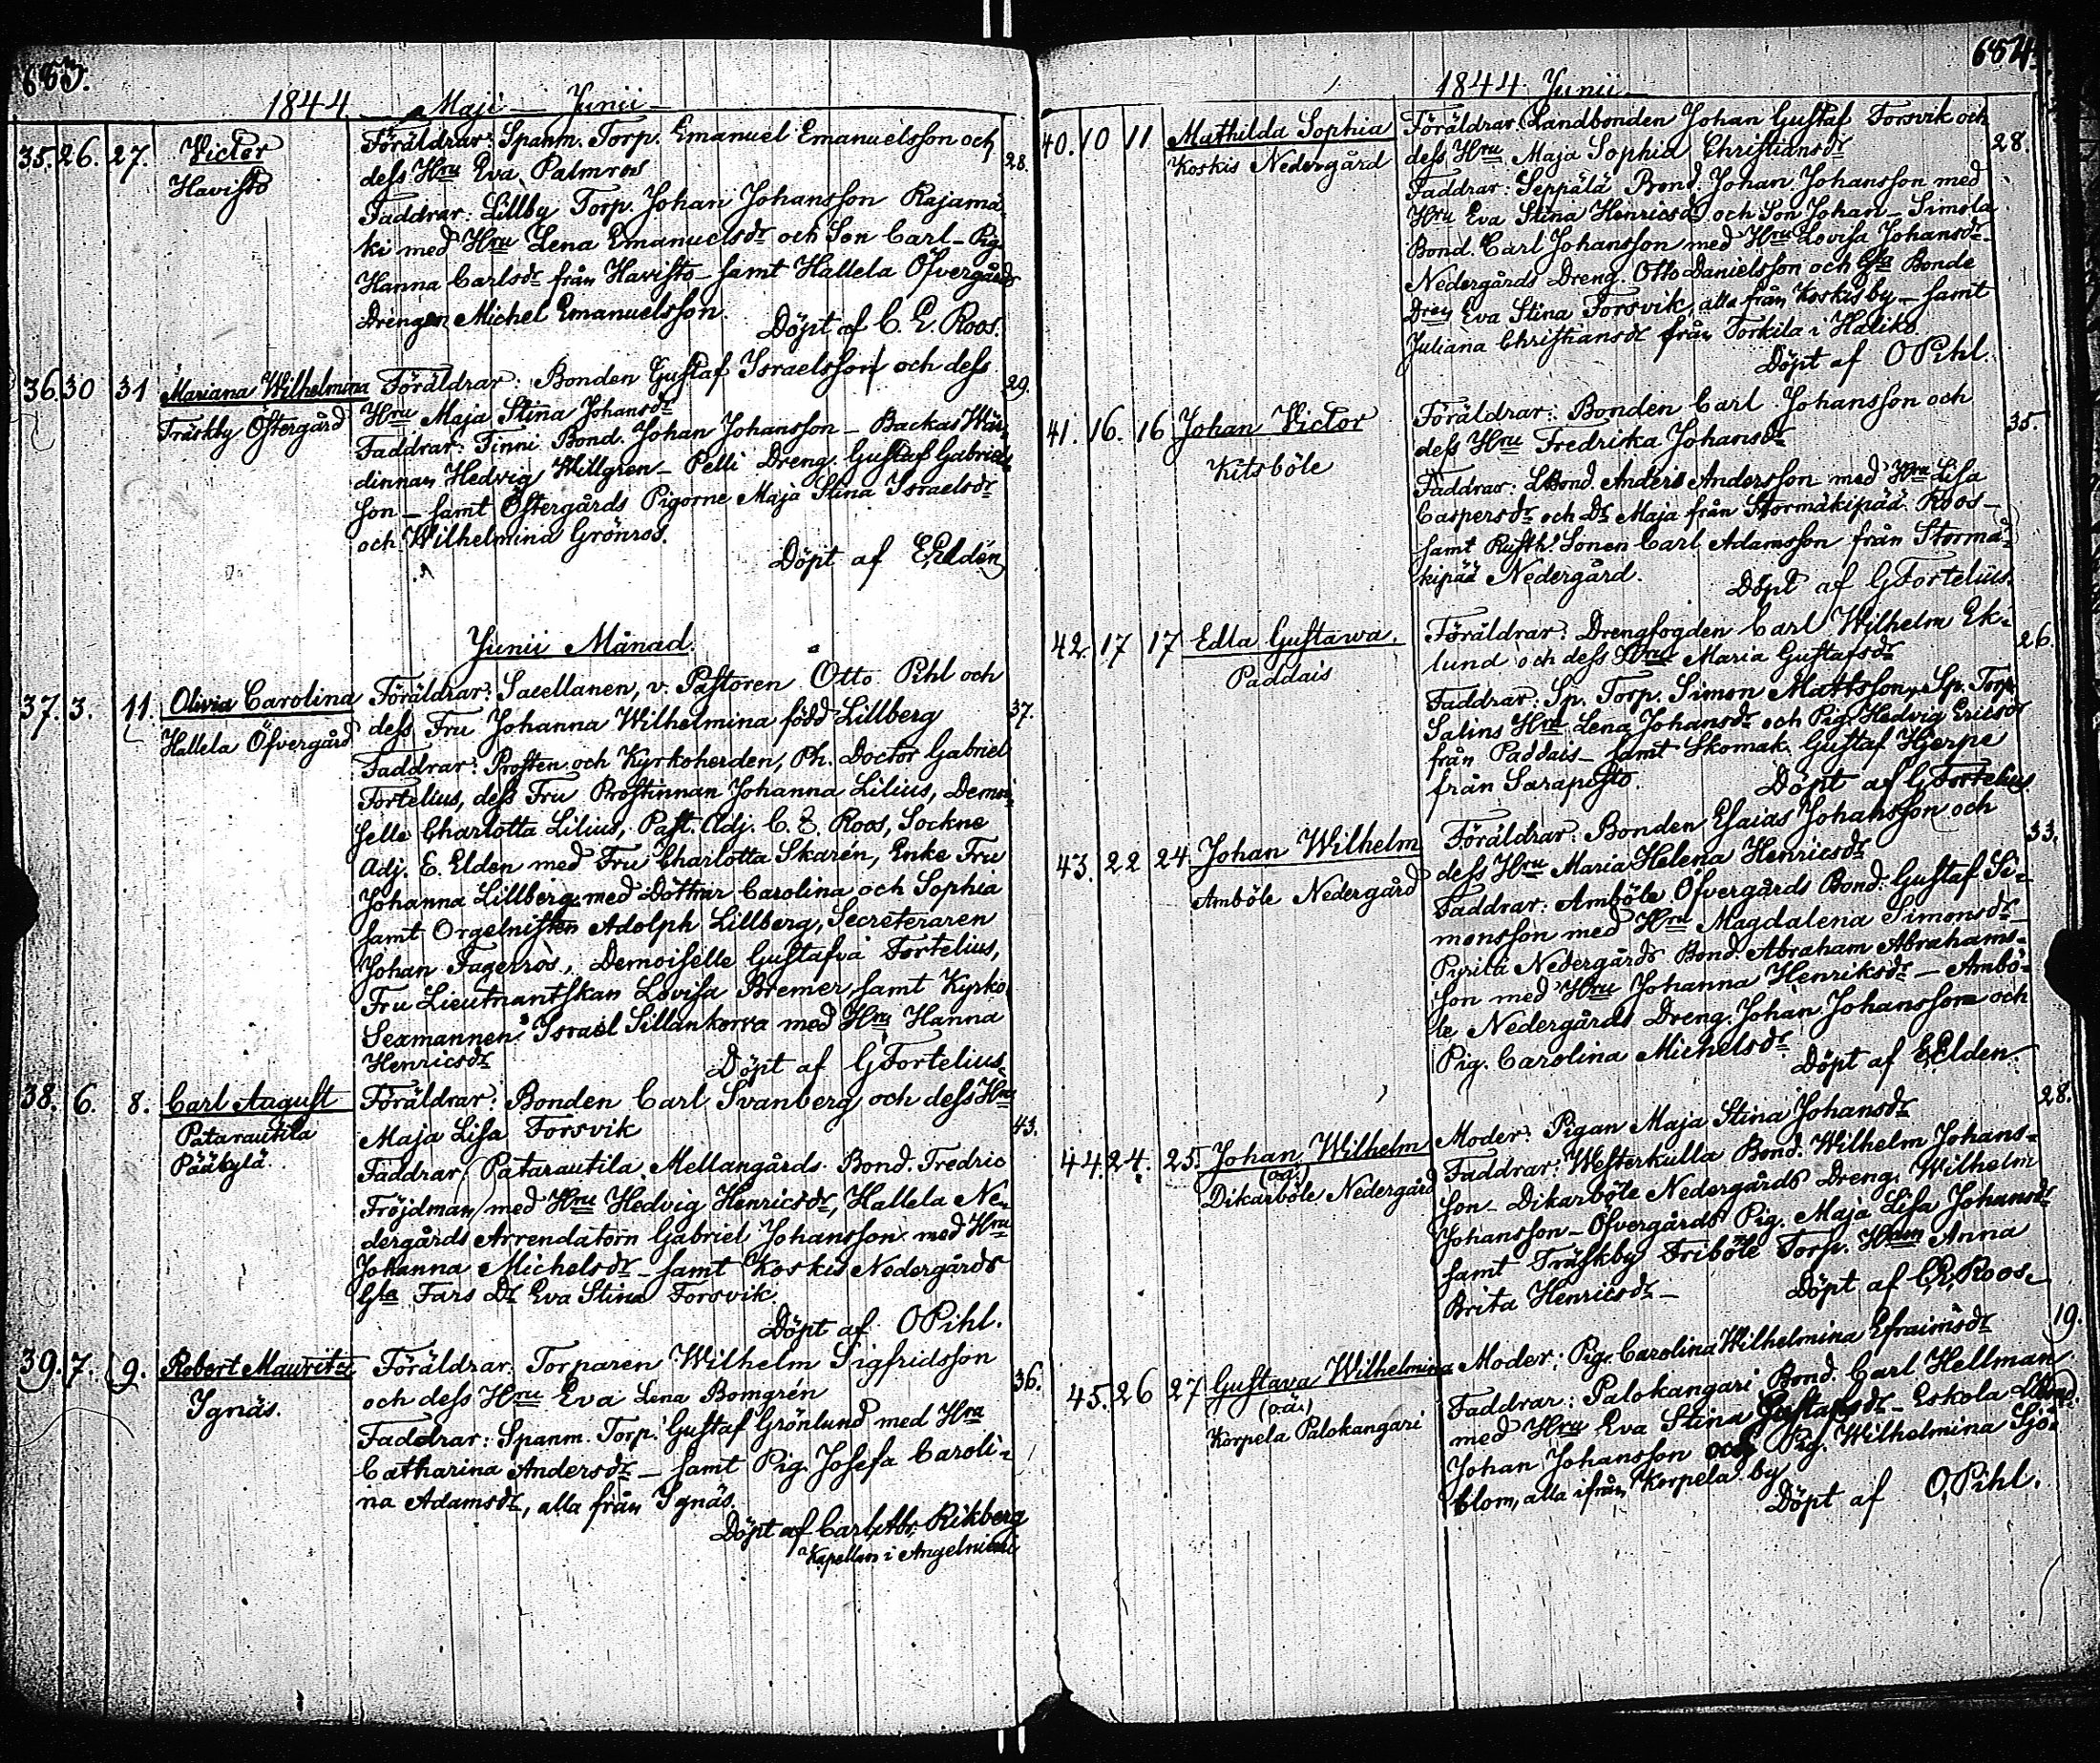 683.
1844. Maji Junii
35. 26. 27. Victor
Havisto
Föräldrar: Spanm. Torp. Emanuel Emanuelsson och
dess Hru Eva Palmros
28.
Faddrar: Lillby Torp. Johan Johansson Rajamä-
ki med Hru Lena Emanuelsdr och Son Carl – Pig.
Hanna Carlsdr från Havisto – samt Hallela Öfvergårds
Drengen Michel Emanuelsson.
Döpt af C. E. Roos.
36. 30 31 Mariana Wilhelmina
Träskby Östergård
Föräldrar: Bonden Gustaf Israelsson och dess
29.
Hru Maja Stina Johansdr
Faddrar: Finni Bond. Johan Johansson – Backas Wär-
dinnan Hedvig Willgren – Pelli Dreng. Gustaf Gabriels-
son – samt Östergårds Pigorne Maja Stina Israelsdr
och Wilhelmina Grönros.
Döpt af E. Eldén
Junii Månad.
37. 3. 11. Olivia Carolina
Hallela Öfvergård
Föräldrar: Sacellanen, v. Pastoren Otto Pihl och
dess Fru Johanna Wilhelmina född Lillberg
37.
Faddrar: Prosten och Kyrkoherden, Ph. Doctor Gabriel
Fortelius, dess Fru Prostinnan Johanna Lilius, Demoi-
selle Charlotta Lilius, Past. Adj. C. E. Roos, Sockne
Adj. E. Elden med Fru Charlotta Skarén, Enke Fru
Johanna Lillberg med Döttrar Carolina och Sophia
samt Orgelnisten Adolph Lillberg, Secreteraren
Johan Fagerros, Demoiselle Gustafva Fortelius,
Fru Lieutnantskan Lovisa Bremer samt Kyrko
Sexmannen Israel Sillankorva med Hru Hanna
Henricsdr
Döpt af G Fortelius.
38. 6. 8. Carl August
Patarautila
Pääkylä.
Föräldrar: Bonden Carl Svanberg och dess Hru
Maja Lisa Forsvik
43.
Faddrar: Patarautila Mellangårds Bond. Fredric
Fröjdman med Hru Hedvig Henricsdr, Hallela Ne-
dergårds Arrendatorn Gabriel Johansson med Hru
Johanna Michelsdr – samt Koskis Nedergårds
Gla Fars Dr Eva Stina Forsvik.
Döpt af O Pihl.
39. 7. 9. Robert Mauritz
Ignäs.
Föräldrar: Torparen Wilhelm Sigfridsson
och dess Hru Eva Lena Bomgrén
36.
Faddrar: Spanm. Torp. Gustaf Grönlund med Hru
Catharina Andersdr – samt Pig. Josefa Caroli-
na Adamsdr, alla från Ignäs.
Döpt af Carl Abr. Rikberg
Kapellan i Angelniemi
684.
1844 Junii
40. 10 11 Mathilda Sophia
Koskis Nedergård
Föräldrar: Landbonden Johan Gustaf Forsvik och
dess Hru Maja Sophia Christiansdr
28.
Faddrar: Seppälä Bond. Johan Johansson med
Hru Eva Stina Henricsdr och Son Johan – Simola
Bond. Carl Johansson med Hru Lovisa Johansdr –
Nedergårds Dreng. Otto Danielsson och Gla Bonde
Dren Eva Stina Forsvik, alla från Koskis by – samt
Juliana Christiansdr från Torkila i Haliko.
Döpt af O Pihl.
41. 16. 16 Johan Victor
Kitsböle
Föräldrar: Bonden Carl Johansson och
dess Hru Fredrika Johansdr
35.
Faddrar: LBond. Anders Andersson med Hru Lisa
Caspersdr och Dr Maja från Stormäkipää Roos –
samt Rusth. Sonen Carl Adamsson från Stormä-
kipää Nedergård.
Döpt af G Fortelius.
42. 17 17 Edla Gustawa.
Paddais
Föräldrar: Drengfogden Carl Wilhelm Ek-
lund och dess Hru Maria Gustafsdr
26.
Faddrar: Sp. Torp. Simon Mattsson, Sp. Torp.
Salins Hru Lena Johansdr och Pig. Hedvig Ericsdr
från Paddais – samt Skomak. Gustaf Hjerpe
från Sarapisto.
Döpt af G Fortelius
43. 22 24 Johan Wilhelm
Amböle Nedergård
Föräldrar: Bonden Esaias Johansson och
dess Hru Maria Helena Henricsdr
33.
Faddrar: Amböle Öfvergårds Bond. Gustaf Si-
monsson med Hru Magdalena Simonsdr –
Pyrilä Nedergårds Bond. Abraham Abrahams-
son med Hru Johanna Henriksdr – Ambö-
le Nedergårds Dreng. Johan Johansson och
Pig. Carolina Michelsdr.
Döpt af E Elden.
44. 24. 25. Johan Wilhelm
(oä.)
Dikarböle Nedergård
Moder: Pigan Maja Stina Johansdr
28.
Faddrar: Westerkulla Bond. Wilhelm Johans-
son – Dikarböle Nedergårds Dreng. Wilhelm
Johansson – Öfvergårds Pig. Maja Lisa Johansdr
samt Träskby Friböle Torp. Hum Anna
Brita Henricsdr –
Döpt af C. E. Roos.
45. 26 27 Gustava Wilhelmina
(oä.)
Korpela Palokangari
Moder: Pig. Carolina Wilhelmina Efraimsdr
19.
Faddrar: Palokangari Bond. Carl Hellman
med Hru Eva Stina Gustafsdr – Eskola LBond.
Johan Johansson och Pig. Wilhelmina Sjö-
blom, alla ifrån Korpela by
Döpt af O. Pihl.